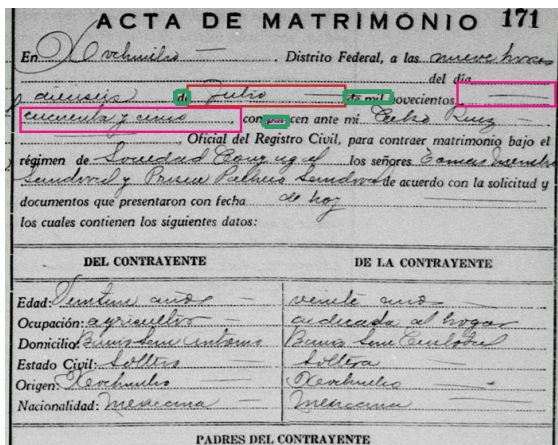 ACTA DE MATRIMONIO 171
En Xochimilco, Distrito Federal, a las nueve horas
del día
dieciseis de Julio de mil novecientos
cincuenta y cinco, comparecen ante mí Ruiz
Oficial del Registro Civil, para contraer matrimonio bajo el
régimen de Sociedad Conyugal los señores Tomas
Sandoval y Sandoval de acuerdo con la solicitud y
documentos que presentaron con fecha de hoy
los cuales contienen los siguientes datos:
DEL CONTRAYENTE DE LA CONTRAYENTE
Edad: años veinte años
Ocupación: agricultor dedicada al hogar
Domicilio: Barrio San Antonio Barrio San
Estado Civil: soltero soltera
Origen: Xochimilco Xochimilco
Nacionalidad: Mexicana Mexicana
PADRES DEL CONTRAYENTE